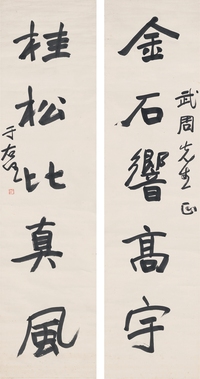 金石響高宇
武周先生正
桂松比真風
于右任